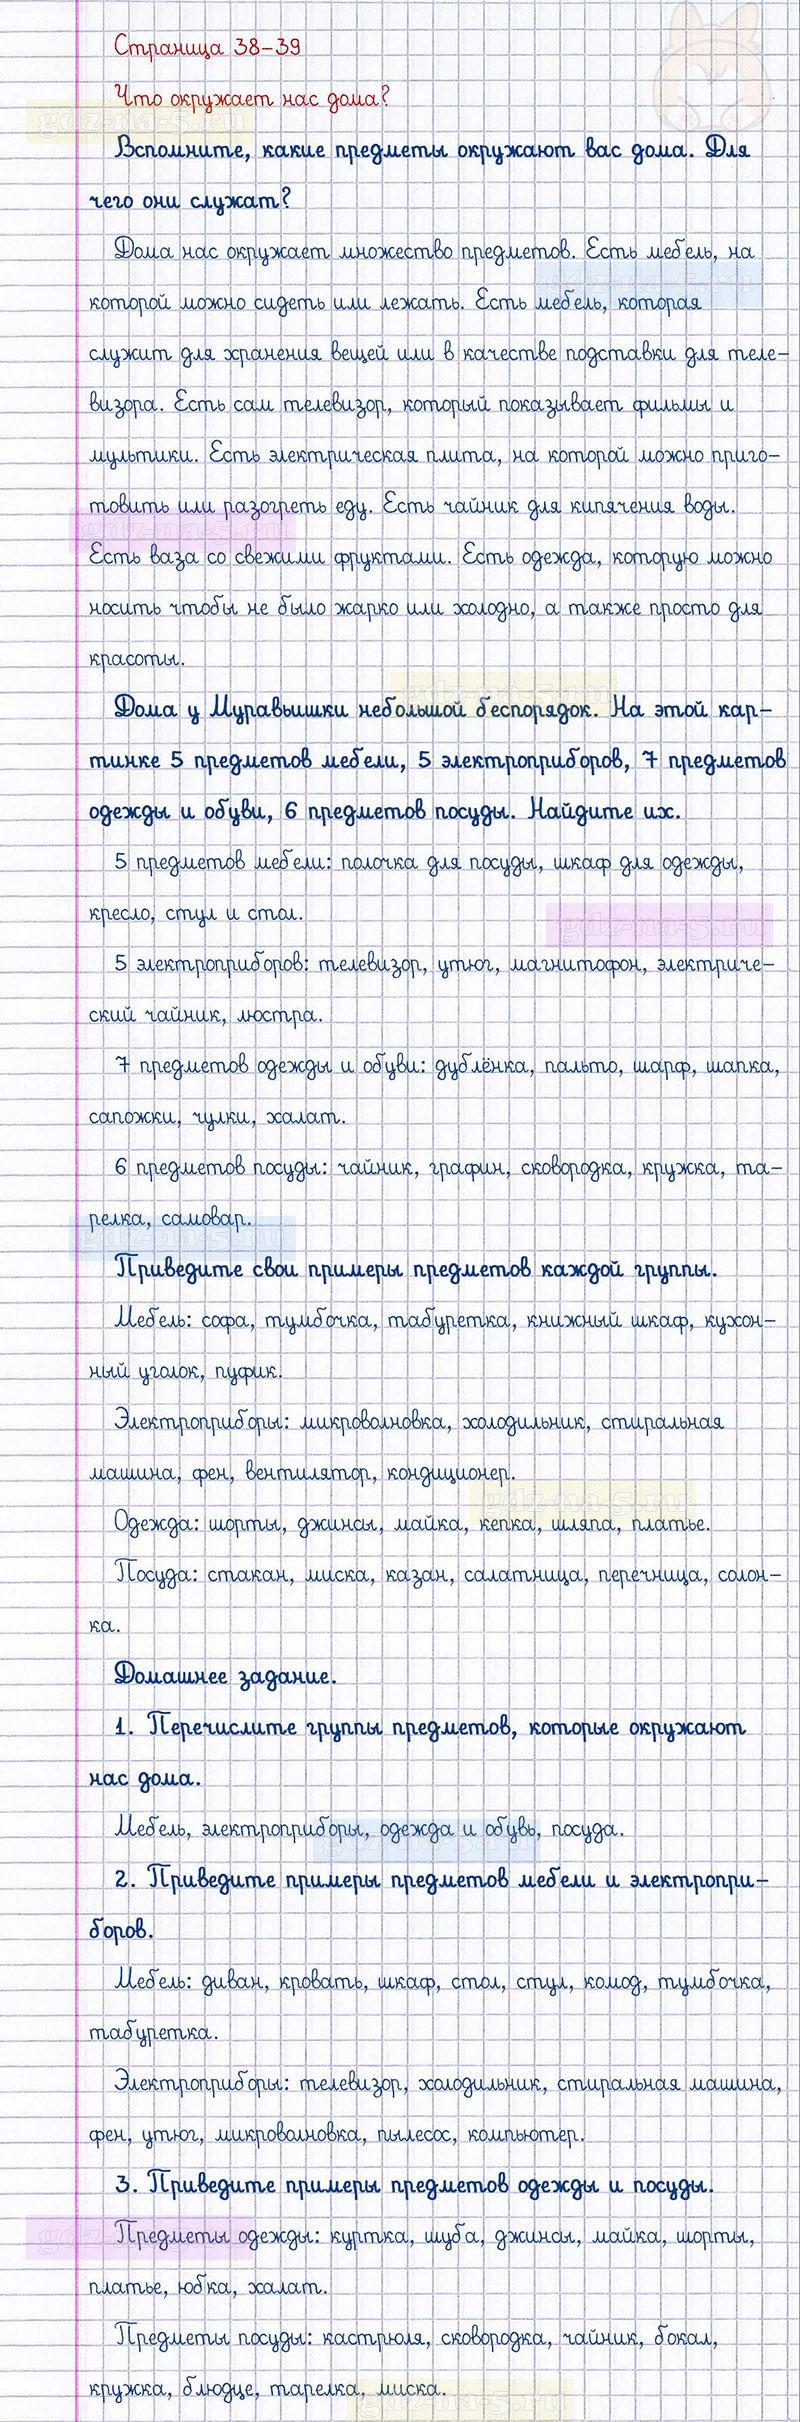 Страница 38-39
Что окружает нас дома?
Вспомните, какие предметы окружают вас дома. Для
чего они служат?
Дома нас окружает множество предметов. Есть мебель, на
которой можно сидеть или лежать. Есть мебель, которая
служит для хранения вещей или в качестве подставки для теле-
визора. Есть сам телевизор, который показывает фильмы и
мультики. Есть электрическая плита, на которой можно приго-
товить или разогреть еду. Есть чайник для кипячения воды.
Есть ваза со свежими фруктами. Есть одежда, которую можно
носить чтобы не было жарко или холодно, а также просто для
красоты.
Дома у Муравьишки небольшой беспорядок. На этой кар-
тинке 5 предметов мебели, 5 электроприборов, 7 предметов
одежды и обуви, 6 предметов посуды. Найдите их.
5 предметов мебели: полочка для посуды, шкаф для одежды,
кресло, стул и стол.
5 электроприборов: телевизор, утюг, магнитофон, электриче-
ский чайник, люстра.
7 предметов одежды и обуви: дублёнка, пальто, шарф, шапка,
сапожки, чулки, халат.
6 предметов посуды: чайник, графин, сковородка, кружка, та-
релка, самовар.
Приведите свои примеры предметов каждой группы.
Мебель: софа, тумбочка, табуретка, книжный шкаф, кухон-
ный уголок, пуфик.
Электроприборы: микроволновка, холодильник, стиральная
машина, фен, вентилятор, кондиционер.
Одежда: шорты, джинсы, майка, кепка, шляпа, платье.
Посуда: стакан, миска, казан, салатница, перечница, солон-
ка.
Домашнее задание.
1. Перечислите группы предметов, которые окружают
нас дома.
Мебель, электроприборы, одежда и обувь, посуда.
2. Приведите примеры предметов мебели и электропри-
боров.
Мебель: диван, кровать, шкаф, стол, стул, комод, тумбочка,
табуретка.
Электроприборы: телевизор, холодильник, стиральная машина,
фен, утюг, микроволновка, пылесос, компьютер.
3. Приведите примеры предметов одежды и посуды.
Предметы одежды: куртка, шуба, джинсы, майка, шорты,
платье, юбка, халат.
Предметы посуды: кастрюля, сковородка, чайник, бокал,
кружка, блюдце, тарелка, миска.
gdz-na-5.ru
gdz-na-5.ru
gdz-na-5.ru
gdz-na-5.ru
gdz-na-5.ru
gdz-na-5.ru
gdz-na-5.ru
gdz-na-5.ru
gdz-na-5.ru
gdz-na-5.ru